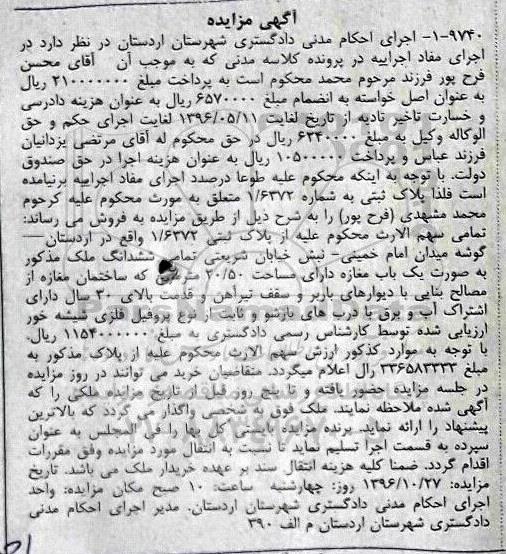 آگهی مزایده
۱-۹۷۴۰- اجرای احکام مدنی دادگستری شهرستان اردستان در نظر دارد در
اجرای مفاد اجراییه در پرونده کلاسه مدنی که به موجب آن آقای محسن
فرح پور فرزند مرحوم محمد محکوم است به پرداخت مبلغ ۲۱۰۰۰۰۰۰۰ ریال
به عنوان اصل خواسته به انضمام مبلغ ۶۵۷۰۰۰۰ ریال به عنوان هزینه دادرسی
و خسارت تاخیر تادیه از تاریخ لغایت ۱۳۹۶/۰۵/۱۱ لغایت اجرای حکم و حق
الوکاله وکیل به مبلغ ۶۲۴۰۰۰۰ ریال در حق محکوم له آقای مرتضی یزدانیان
فرزند عباس و پرداخت ۱۰۵۰۰۰۰۰ ریال به عنوان هزینه اجرا در حق صندوق
دولت. با توجه به اینکه محکوم علیه طوعا درصدد اجرای مفاد اجراییه برنیامده
است فلذا پلاک ثبتی به شماره ۱/۶۳۷۲ متعلق به مورث محکوم علیه کرحوم
محمد مشهدی (فرح پور) را به شرح ذیل از طریق مزایده به فروش می رساند:
تمامی سهم الارث محکوم علیه از پلاک ثبتی ۱/۶۳۷۲ واقع در اردستان —
گوشه میدان امام خمینی- نبش خیابان شریعتی تمامی ششدانگ ملک مذکور
به صورت یک باب مغازه دارای مساحت ۲۰/۵۰ که ساختمان مغازه از
مصالح بنایی با دیوارهای باربر و سقف تیرآهن و قدمت بالای ۳۰ سال دارای
اشتراک آب و برق با درب های بازشو و ثابت از نوع پروفیل فلزی شیشه خور
ارزیابی شده توسط کارشناس رسمی دادگستری به مبلغ ۱۱۵۴۰۰۰۰۰۰ ریال.
با توجه به موارد کذکور ارزش سهم الارث محکوم علیه از پلاک مذکور به
مبلغ ۳۳۶۵۸۳۳۳۳ رال اعلام میگردد. متقاضیان خرید می توانند در روز مزایده
در جلسه مزایده حضور یافته و تا پنج روز قبل از تاریخ مزایده ملکی را که
آگهی شده ملاحظه نمایند. ملک فوق به شخصی واگذار می گردد که بالاترین
پیشنهاد را ارائه نماید. برنده مزایده بایستی کل بها را فی المجلس به عنوان
سپرده به قسمت اجرا تسلیم نماید تا نسبت به انتقال مورد مزایده وفق مقررات
اقدام گردد. ضمنا کلیه هزینه انتقال سند بر عهده خریدار ملک می باشد. تاریخ
مزایده: ۱۳۹۶/۱۰/۲۷ روز: چهارشنبه ساعت: ۱۰ صبح مکان مزایده: واحد
اجرای احکام مدنی دادگستری شهرستان اردستان. مدیر اجرای احکام مدنی
دادگستری شهرستان اردستان م الف ۳۹۰